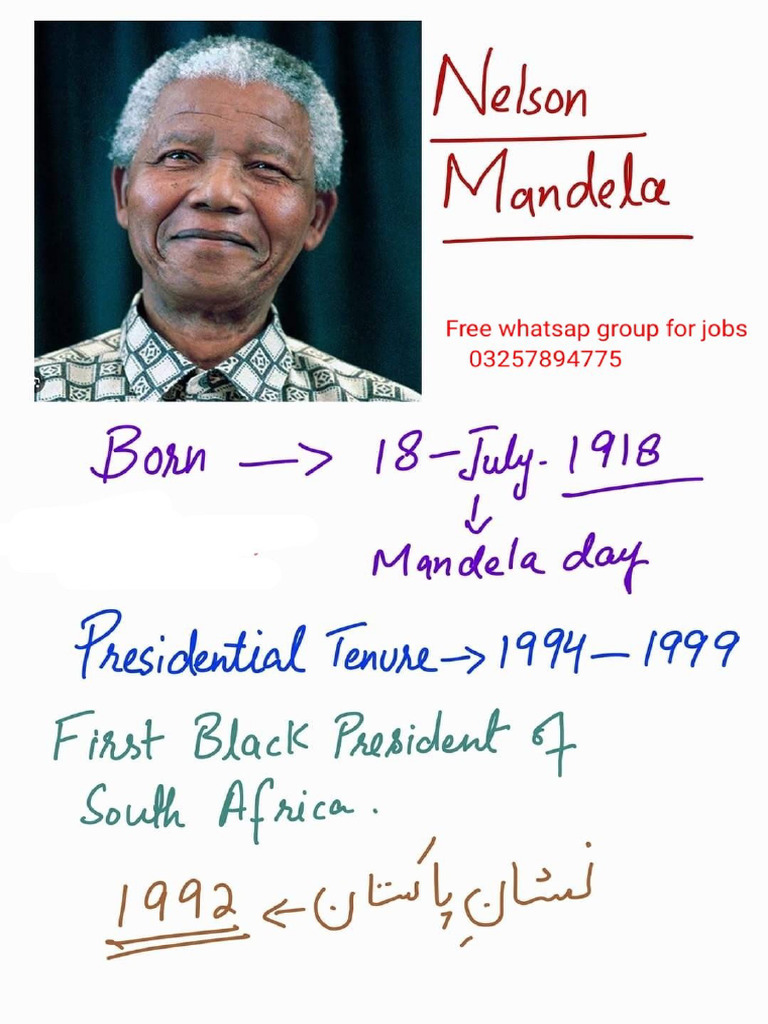 Nelson
Mandela
Free whatsap group for jobs
03257894775
Born → 18-July-1918
↓
Mandela day
Presidential Tenure → 1994-1999
First Black President of
South Africa.
نشانِ پاکستان ← 1992